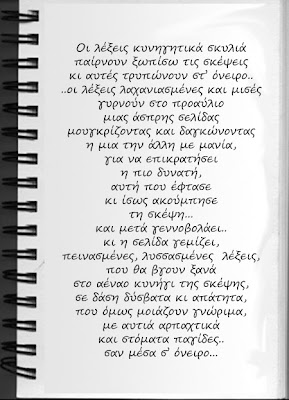 Οι λέξεις κυνηγητικά σκυλιά
παίρνουν ξωπίσω τις σκέψεις
κι αυτές τρυπώνουν στ' όνειρο..
..οι λέξεις λαχανιασμένες και μισές
γυρνούν στο προαύλιο
μιας άσπρης σελίδας
μουγκρίζοντας και δαγκώνοντας
η μια την άλλη με μανία,
για να επικρατήσει
η πιο δυνατή,
αυτή που έφτασε
κι ίσως ακούμπησε
τη σκέψη...
και μετά γεννοβολάει..
κι η σελίδα γεμίζει,
πεινασμένες, λυσσασμένες λέξεις,
που θα βγουν ξανά
στο αέναο κυνήγι της σκέψης,
σε δάση δύσβατα κι απάτητα,
που όμως μοιάζουν γνώριμα,
με αυτιά αρπαχτικά
και στόματα παγίδες..
σαν μέσα σ' όνειρο...